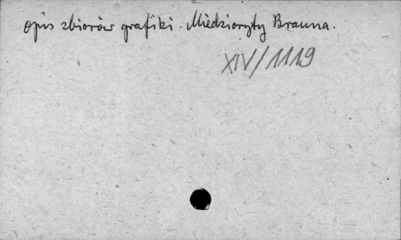 Opis zbiorów grafiki. Miedzioryty Brauna.
XIV/1119